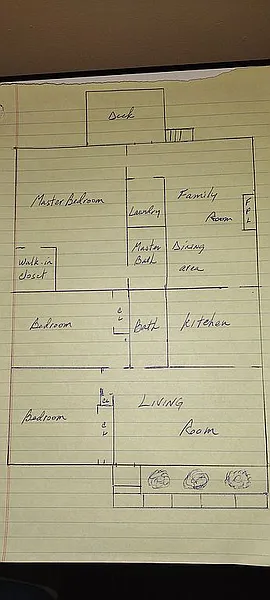 Deck
Master Bedroom
Family
Room
F
P
L
Laundry
Master
Bath
Dining
area
Walk-in
closet
Bedroom
c
L
Bath
kitchen
CL
LIVING
Room
Bedroom
c
L